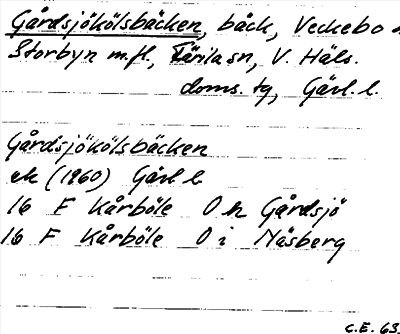 Gårdsjökölsbäcken, bäck, Veckebo
Storbyn m.fl., Färila sn, V. Häls.
doms. tg, Gävl. l.
Gårdsjökölsbäcken
ek (1960) Gävl l
16 F Kårböle O n Gårdsjö
16 F Kårböle O i Näsberg
C.E. 63